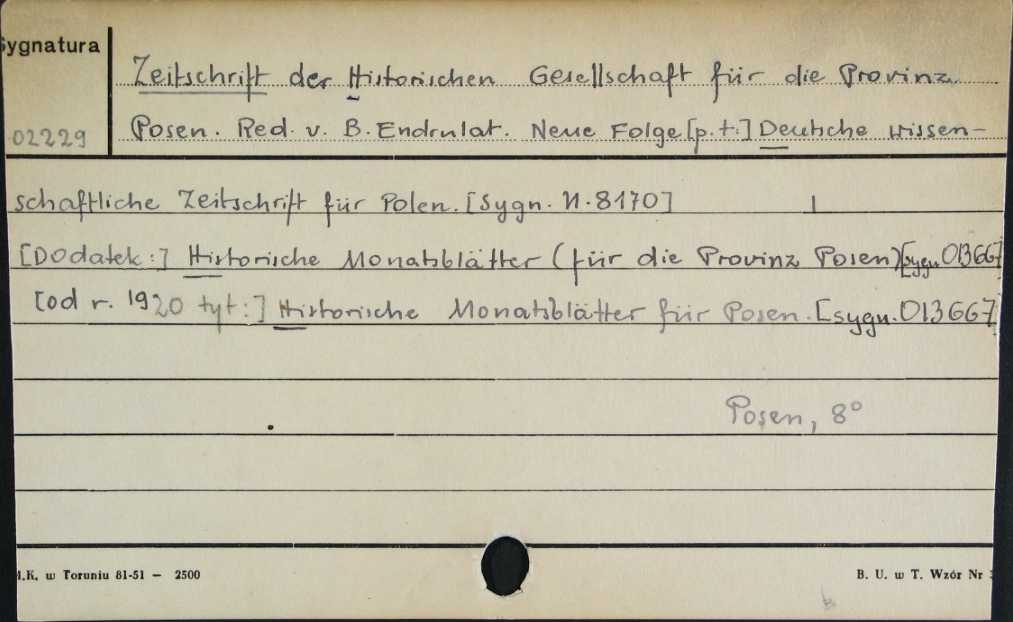 Sygnatura
Zeitschrift der Historischen Gesellschaft für die Provinz
02229 Posen. Red. v. B. Endrulat. Neue Folge [p.t:] Deutsche wissen-
schaftliche Zeitschrift für Polen. [Sygn. N.8170]
[Dodatek:] Historische Monatsblätter (für die Provinz Posen) [sygn. 013667]
[od r. 1920 tyt:] Historische Monatsblätter für Posen. [sygn. 013667]
Posen, 8°
M.K. w Toruniu 81-51 — 2500
B. U. w T. Wzór Nr